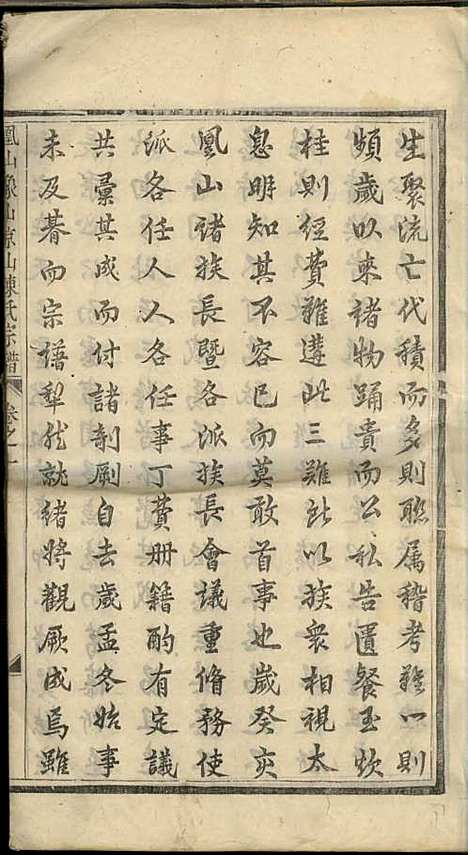 生聚流亡代積而多則聯属稽考難一則
頻歲以来諸物踊貴而公私告匱餐玉炊
桂則經費難遘此三難所以族衆相視太
息明知其不容已而莫敢首事也歲癸亥
鳳山诸族長暨各派族長會議重脩務使
派各任人人各任事丁費册籍酌有定議
共彙其成而付諸剞劂自去歲孟冬始事
未及朞而宗譜犁然就緒将觀厥成焉雖
鳳山象山凉山陳氏宗譜 卷之一